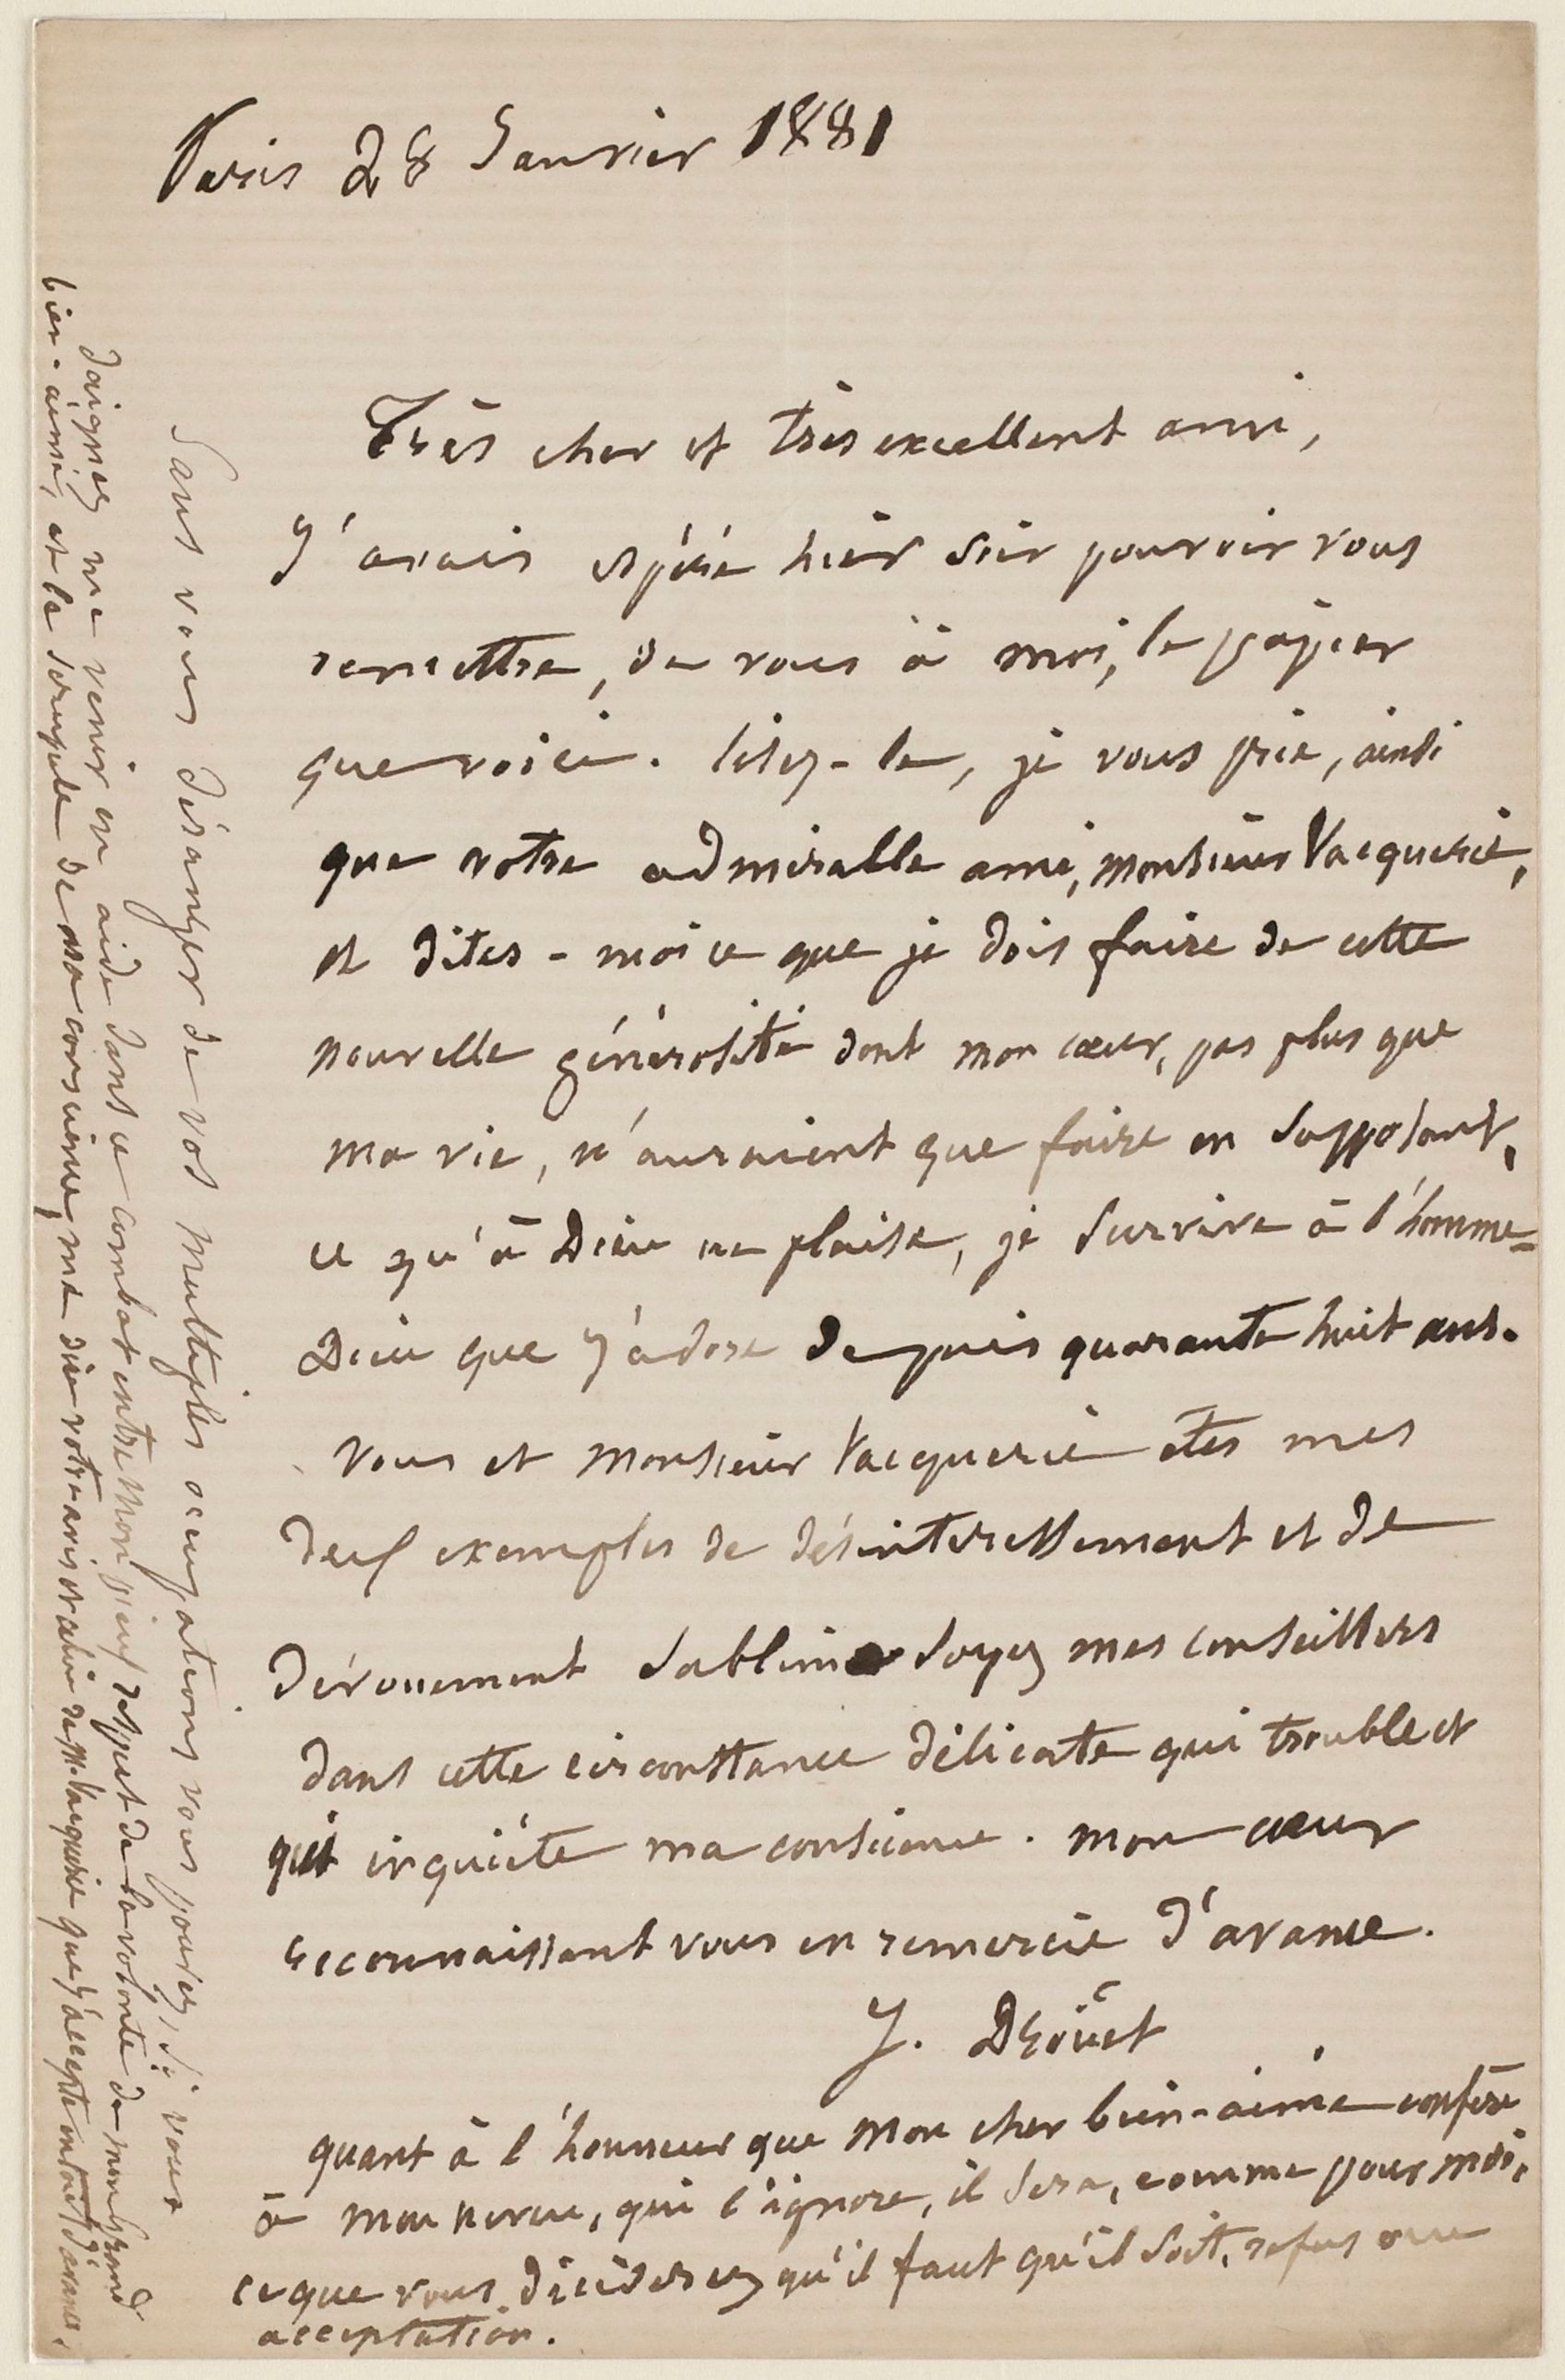 Paris 28 Janvier 1881
Très cher et très excellent ami,
J'avais espéré hier soir pouvoir vous
remettre, de vous à moi, le papier
que voici. lisez-le, je vous prie, ainsi
que votre admirable ami, monsieur Vacquerie,
et dites-moi ce que je dois faire de cette
nouvelle générosité dont mon cœur, pas plus que
ma vie, n'auraient que faire en supposant,
ce qu'à Dieu ne plaise, je survive à l'homme-
Dieu que j'adore depuis quarante huit ans.
Vous et monsieur Vacquerie êtes mes
deux exemples de désintéressement et de
dévouement sublime soyez mes conseillers
dans cette circonstance délicate qui trouble et
qui inquiète ma conscience. mon cœur
reconnaissant vous en remercie d'avance.
J. Droüet
quant à l'honneur que mon cher bien-aimé confère
à mon neveu, qui l'ignore, il sera, comme pour moi,
ce que vous déciderez qu'il faut qu'il soit, refus ou
acceptation.
Sans vous déranger de vos multiples occupations vous pouvez, si vous
daignez me venir en aide dans ce combat entre mon pieux respect de la volonté de mon grand
bien-aimé, et le scrupule de ma conscience, me dire votre avis et celui de M. Vacquerie que j'accepte entout d'avance.